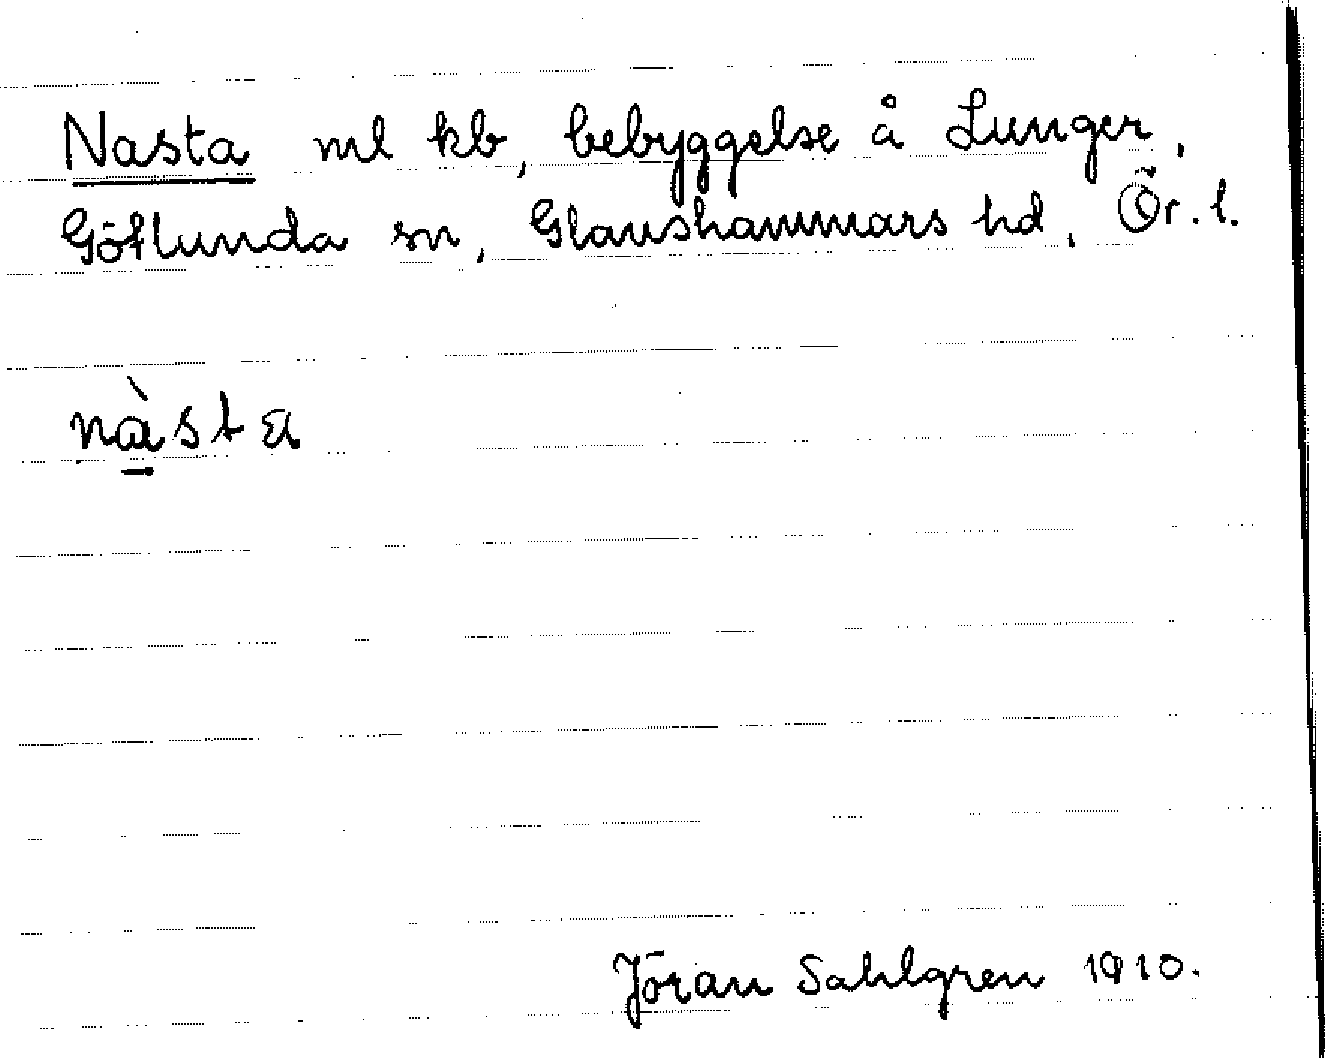 Nasta ml kb, bebyggelse å Lunger,
Götlunda sn, Glanshammars hd, Ör. l.
nàsta
Jöran Sahlgren 1910.